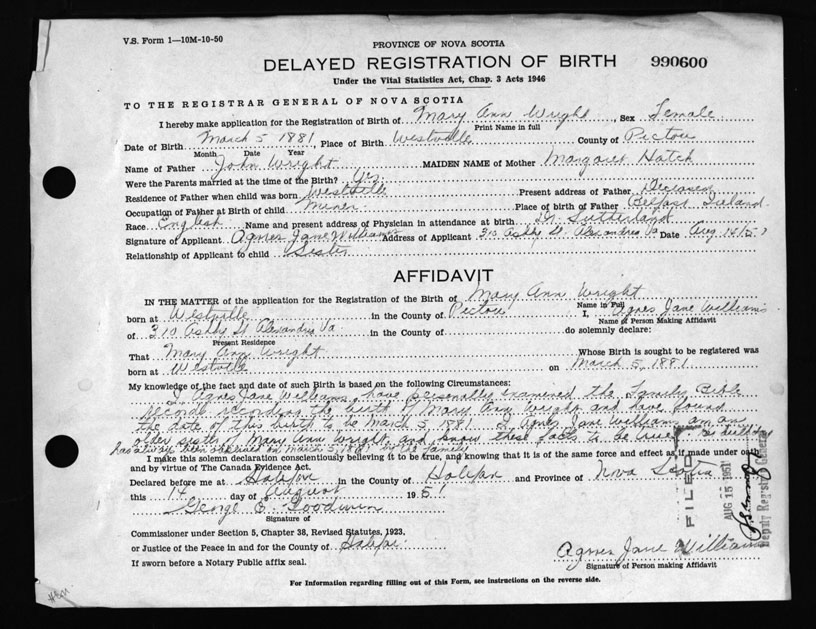 V.S. Form 1—10M-10-50
PROVINCE OF NOVA SCOTIA
DELAYED REGISTRATION OF BIRTH 990600
Under the Vital Statistics Act, Chap. 3 Acts 1946
TO THE REGISTRAR GENERAL OF NOVA SCOTIA
I hereby make application for the Registration of Birth of Mary Ann Wright, Sex Female
Print Name in full
Date of Birth March 5 1881, Place of Birth Westville County of Pictou
Month Date Year
Name of Father John Wright MAIDEN NAME of Mother Margaret Hatch
Were the Parents married at the time of the Birth? Yes.
Residence of Father when child was born Westville Present address of Father Deceased
Occupation of Father at Birth of child Miner Place of birth of Father Belfast Ireland
Race English Name and present address of Physician in attendance at birth Dr. Sutherland
Signature of Applicant Agnes Jane Williams Address of Applicant 310 Ashby St. Alexandria Va Date Aug 14/51
Relationship of Applicant to child Sister
AFFIDAVIT
IN THE MATTER of the application for the Registration of the Birth of Mary Ann Wright
Name in Full
born at Westville in the County of Pictou I, Agnes Jane Williams
Name of Person Making Affidavit
of 310 Ashby St Alexandria Va in the County of do solemnly declare:
Present Residence
That Mary Ann Wright Whose Birth is sought to be registered was
born at Westville on March 5, 1881
My knowledge of the fact and date of such Birth is based on the following Circumstances:
I, Agnes Jane Williams, have personally examined the Family Bible
records recording the birth of Mary Ann Wright and have found
the date of this birth to be March 5, 1881. I, Agnes Jane Williams am an
older sister of Mary Ann Wright and know these facts to be true. birthday
has always been observed on March 5, 1881 by the family
I make this solemn declaration conscientiously believing it to be true, and knowing that it is of the same force and effect as if made under oath
and by virtue of The Canada Evidence Act.
Declared before me at Halifax in the County of Halifax and Province of Nova Scotia
this 14 day of August 1951
George E. Goodwin
Signature of
Commissioner under Section 5, Chapter 38, Revised Statutes, 1923,
or Justice of the Peace in and for the County of Halifax
Agnes Jane Williams
Signature of Person making Affidavit
If sworn before a Notary Public affix seal.
For Information regarding filling out of this Form, see instructions on the reverse side.
FILED
AUG 15 1951
Deputy Registrar General